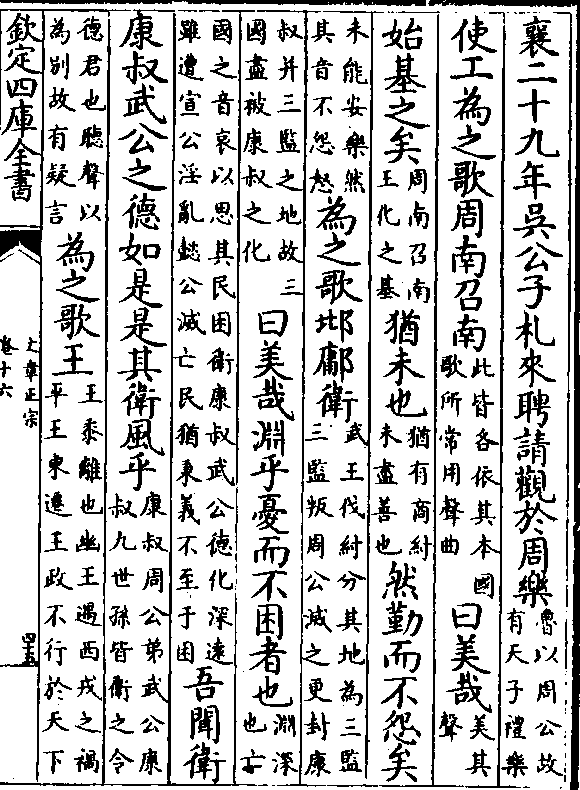 襄二十九年吳公子札來聘請觀於周樂魯以周公故有天子禮樂
使工為之歌周南召南此皆各依其本國歌所常用聲曲曰美哉美其聲
始基之矣周南召南王化之基猶未也猶有商紂未盡善也然勤而不怨矣
未能安樂然其音不怨怒為之歌邶鄘衛武王伐紂分其地為三監三監叛周公滅之更封康
叔并三監之地故三國盡被康叔之化曰美哉淵乎憂而不困者也淵深也亡
國之音哀以思其民困衛康叔武公德化深遠雖遭宣公淫亂懿公滅亡民猶秉義不至于困吾聞衛
康叔武公之德如是是其衛風乎康叔周公弟武公康叔九世孫皆衛之令
德君也聽聲以為別故有疑言為之歌王王黍離也幽王遇西戎之禍平王東遷王政不行於天下
欽定四庫全書
文章正宗
卷十六